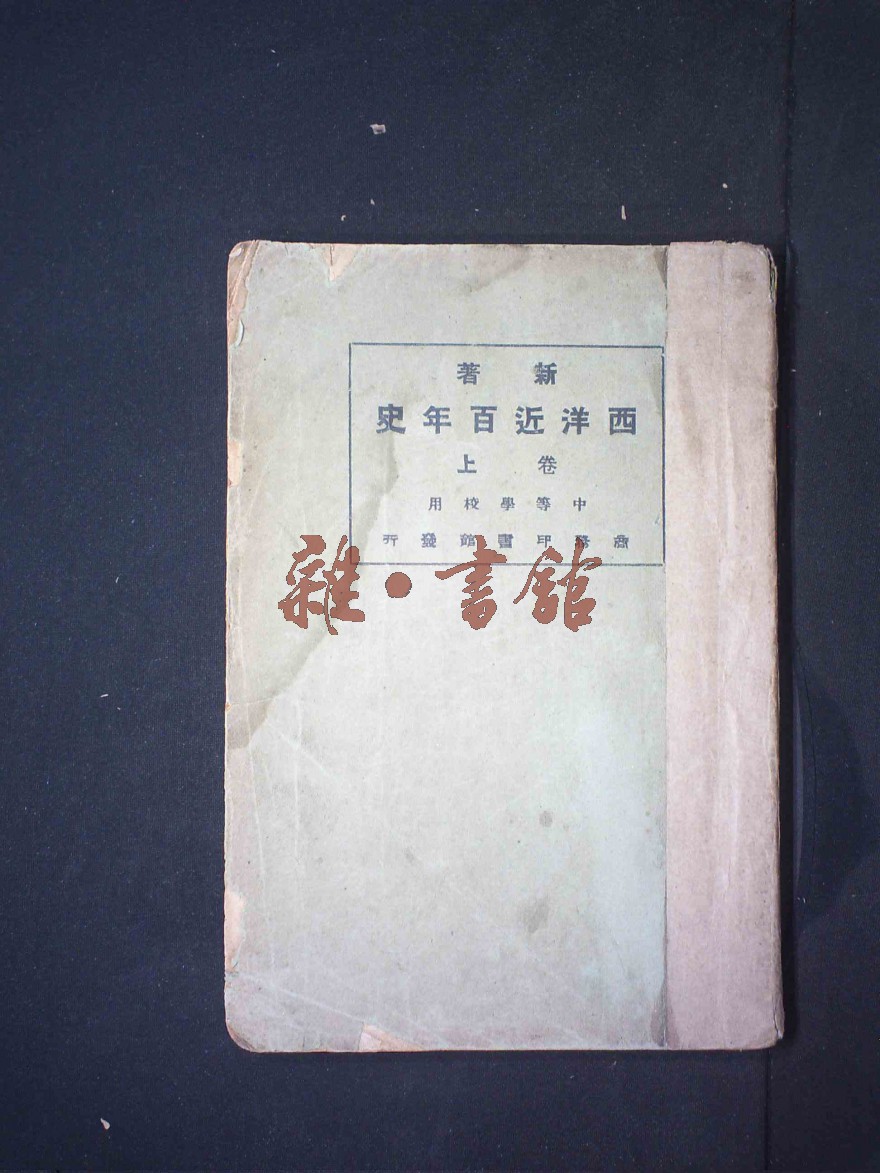 新著
西洋近百年史
卷上
中等學校用
商務印書館發行
雜·書館